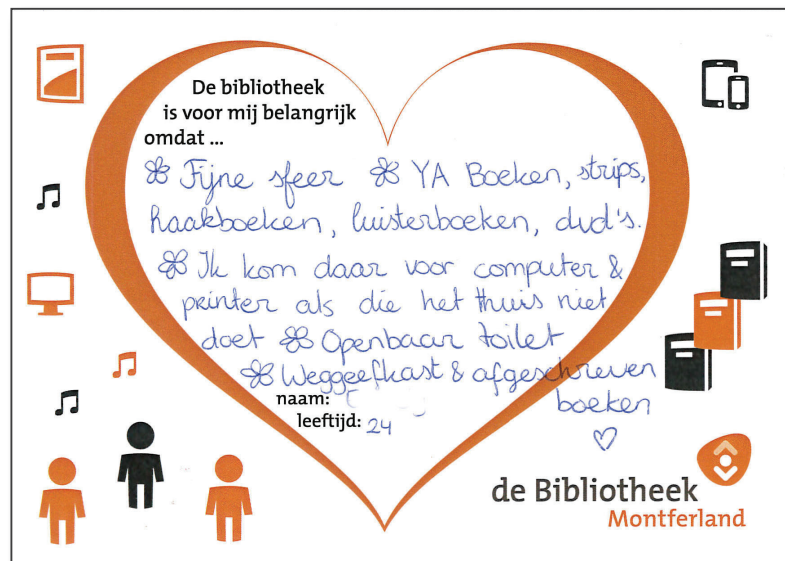 De bibliotheek
is voor mij belangrijk
omdat ...
Fijne sfeer YA Boeken, strips,
haakboeken, luisterboeken, dvd's.
Ik kom daar voor computer &
printer als die het thuis niet
doet Openbaar toilet
Weggeefkast & afgeschreven
boeken
naam:
leeftijd: 24
de Bibliotheek
Montferland